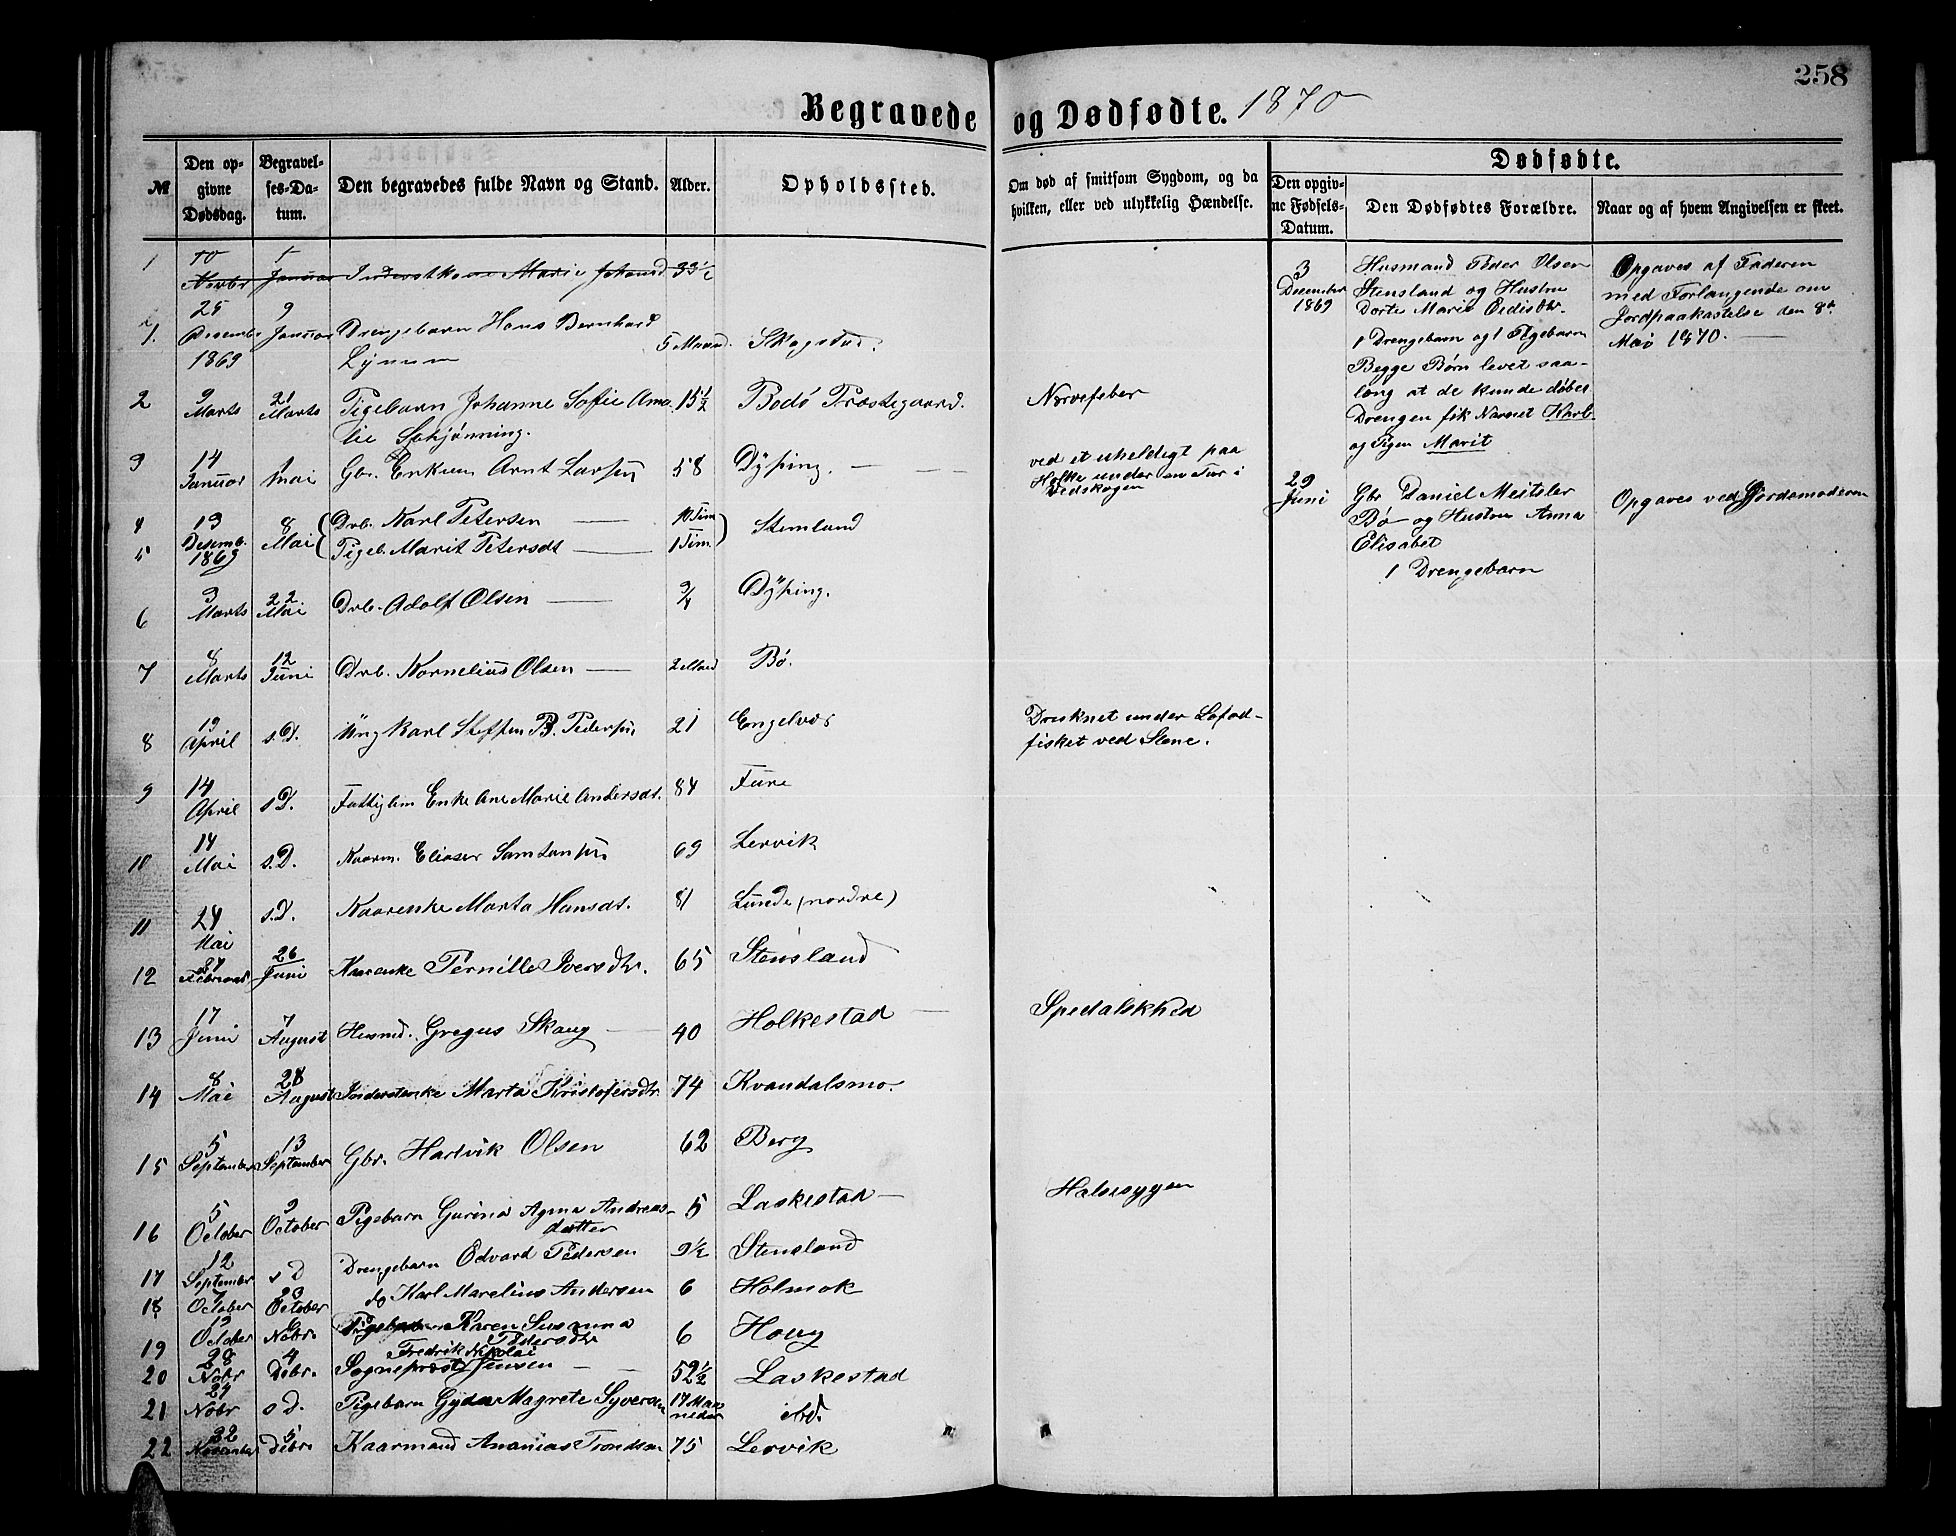 258
Begravede og Dødfødte. 1870
№
Den opgivne Dødsdag.
Begravelses-Datum.
Den begravedes fulde Navn og Stand.
Alder.
Opholdssted.
Om død af smitsom Sygdom, og da hvilken, eller ved ulykkelig Hændelse.
Dødfødte.
Den opgivne Fødsels-Datum.
Den Dødfødtes Forældre.
Naar og af hvem Angivelsen er skeet.
1 10 Novbr 1 Januar Marie Johansd. 33½
1. 25 Desember 1869 9 Januar Drengebarn Hans Bernhard 5 Maaned.
2 9 Marts 21 Marts Pigebarn Johanne Sofie Ama- 15½ Bodø Præstegaard. Nervefeber
lie Schjønning.
3 14 Januar 1 Mai Gbr. Enkem Arnt Larsen 58 Dyping. ved et uheldigt paa
under en Tur i
Vedskogen
4 13 Desemb. 1869 8 Mai Drb. Karl Petersen 10 Tim Stensland
5 Pigeb. Marit Petersdt 1 Tim.
6 3 Marts 22 Mai Drb. Adolf Olsen ¾ Dyping.
7 8 Marts 12 Juni Drb. Kornelius Olsen 2 Maned Bø.
8 19 April s.D. Ungkarl Steffen B. Pedersen 21 Engelvær Druknet under Lofod-
fisket ved Stene.
9 14 April s.D. Fattiglem Enke Ane Marie Andersdt. 84 Fure
10 14 Mai s.D. Kaarm. Elieser 69 Lervik
11 24 Mai s.D. Kaarenke Marta Hansdt. 81 Lunde (nordre)
12 Februar 26 Juni Kaarenke Pernille Iversdtr. 65 Stensland
13 17 Juni 7 August Husmd. Gregus Skaug 40 Holkestad Spedalskhed
14 8 Mai 28 August Inderstenke Marta Kristofersdtr 74 Kvandalsmo.
15 5 September 13 September Gbr. Hartvik Olsen 62 Berg
16 5 October 9 October Pigebarn Gurina Agma Andreas- 5 Laskestad Halssygen
datter
17 12 September s D Drengebarn Edvard Pedersen 9½ Stensland
18 7 October 23 October do Karl Marelius Andersen 6 Holmok
19 19 October 6 Nobr. Pigebarn Karen Susanna 6 Houg
Pedersdtr
20 28 Nobr 4 Debr. Sogneprest Fredrik Nikolai Jensen 52½ Laskestad
21 24 Nobr s D. Pigebarn Gyda Magrete Syversen 17 Maaneder
22 22 November 5 Debr Kaarmand Ananias Trondsen 75 Lervik
3 December 1869
Husmand Peder Olsen
Stensland og Hustru
Dorte Marie
1 Drengebarn og 1 Pigebarn
Begge Børn levet saa-
læng at de kunde døbes
Drengen fik Navnet Karl
og Pigen Marit
Opgaves af Faderen
med Forlangende om
Jordpaakastelse den 8de
Mai 1870.
29 Juni
Gbr Daniel Meitsler
Bø og Hustru Anna
Elisabet
1 Drengebarn
Opgaves ved Jordemoderen